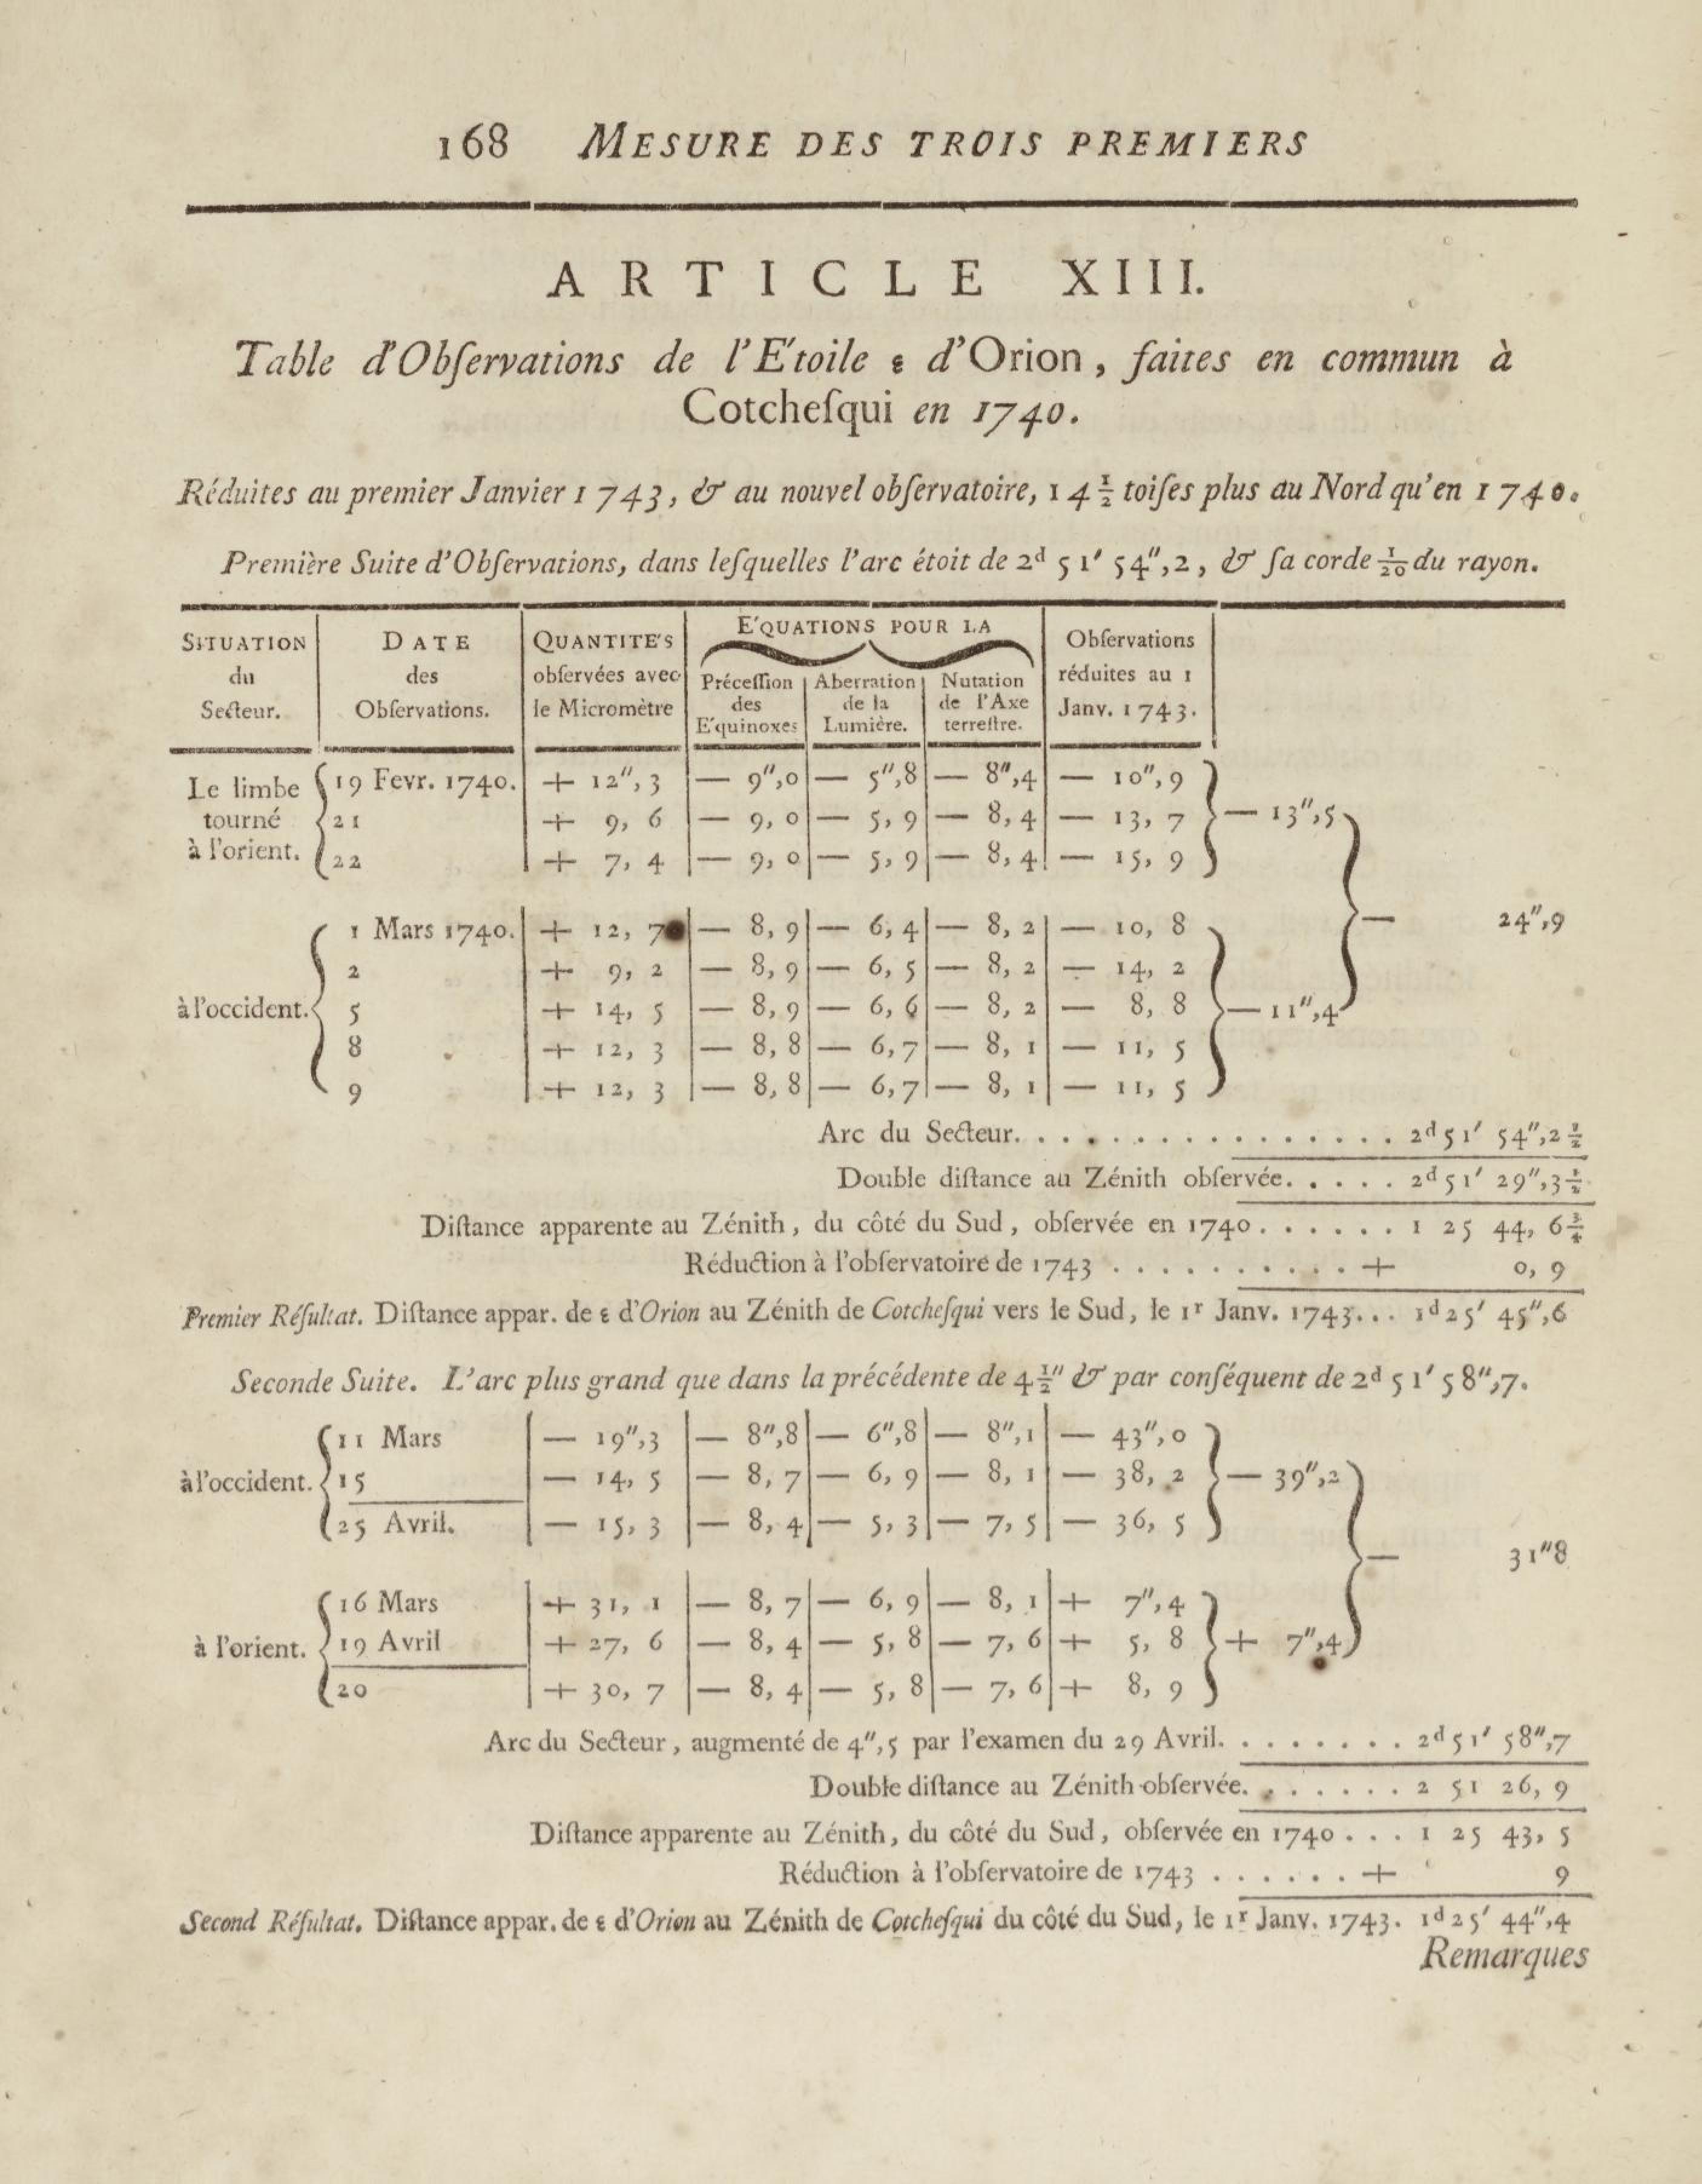 168 MESURE DES TROIS PREMIERS
ARTICLE XIII.
Table d'Obſervations de l'E'toile ε d'Orion, faites en commun à
Cotcheſqui en 1740.
Réduites au premier Janvier 1743, & au nouvel obſervatoire, 14 1/2 toiſes plus au Nord qu'en 1740.
Première Suite d'Obſervations, dans leſquelles l'arc étoit de 2d 51' 54",2, & ſa corde 1/20 du rayon.
SITUATION du Secteur.
DATE des Obſervations.
QUANTITE'S obſervées avec le Micromètre
E'QUATIONS POUR LA
Préceſſion des E'quinoxes
Aberration de la Lumière.
Nutation de l'Axe terreſtre.
Obſervations réduites au 1 Janv. 1743.
Le limbe tourné à l'orient.
19 Fevr. 1740. + 12", 3 — 9",0 — 5",8 — 8",4 — 10", 9
21 + 9, 6 — 9, 0 — 5, 9 — 8, 4 — 13, 7 — 13",5
22 + 7, 4 — 9, 0 — 5, 9 — 8, 4 — 15, 9
— 24",9
à l'occident.
1 Mars 1740. + 12, 7 — 8, 9 — 6, 4 — 8, 2 — 10, 8
2 + 9, 2 — 8, 9 — 6, 5 — 8, 2 — 14, 2
5 + 14, 5 — 8, 9 — 6, 6 — 8, 2 — 8, 8 — 11",4
8 + 12, 3 — 8, 8 — 6, 7 — 8, 1 — 11, 5
9 + 12, 3 — 8, 8 — 6, 7 — 8, 1 — 11, 5
Arc du Secteur. . . . . . . . . . . . . . . . . 2d 51' 54",2 1/2
Double diſtance au Zénith obſervée. . . . . . 2d 51' 29",3 1/2
Diſtance apparente au Zénith, du côté du Sud, obſervée en 1740 . . . . . . 1 25 44, 6 3/4
Réduction à l'obſervatoire de 1743 . . . . . . . . . . + 0, 9
Premier Réſultat. Diſtance appar. de ε d'Orion au Zénith de Cotcheſqui vers le Sud, le 1r Janv. 1743. . . 1d 25' 45",6
Seconde Suite. L'arc plus grand que dans la précédente de 4 1/2" & par conſéquent de 2d 51' 58",7.
à l'occident.
11 Mars — 19",3 — 8",8 — 6",8 — 8",1 — 43",0
15 — 14, 5 — 8, 7 — 6, 9 — 8, 1 — 38, 2 — 39",2
25 Avril. — 15, 3 — 8, 4 — 5, 3 — 7, 5 — 36, 5
— 31"8
à l'orient.
16 Mars + 31, 1 — 8, 7 — 6, 9 — 8, 1 + 7",4
19 Avril + 27, 6 — 8, 4 — 5, 8 — 7, 6 + 5, 8 + 7",4
20 + 30, 7 — 8, 4 — 5, 8 — 7, 6 + 8, 9
Arc du Secteur, augmenté de 4",5 par l'examen du 29 Avril. . . . . . . . 2d 51' 58",7
Double diſtance au Zénith obſervée. . . . . . . 2 51 26, 9
Diſtance apparente au Zénith, du côté du Sud, obſervée en 1740 . . . 1 25 43, 5
Réduction à l'obſervatoire de 1743 . . . . . . + 9
Second Réſultat. Diſtance appar. de ε d'Orion au Zénith de Cotcheſqui du côté du Sud, le 1r Janv. 1743. 1d 25' 44",4
Remarques